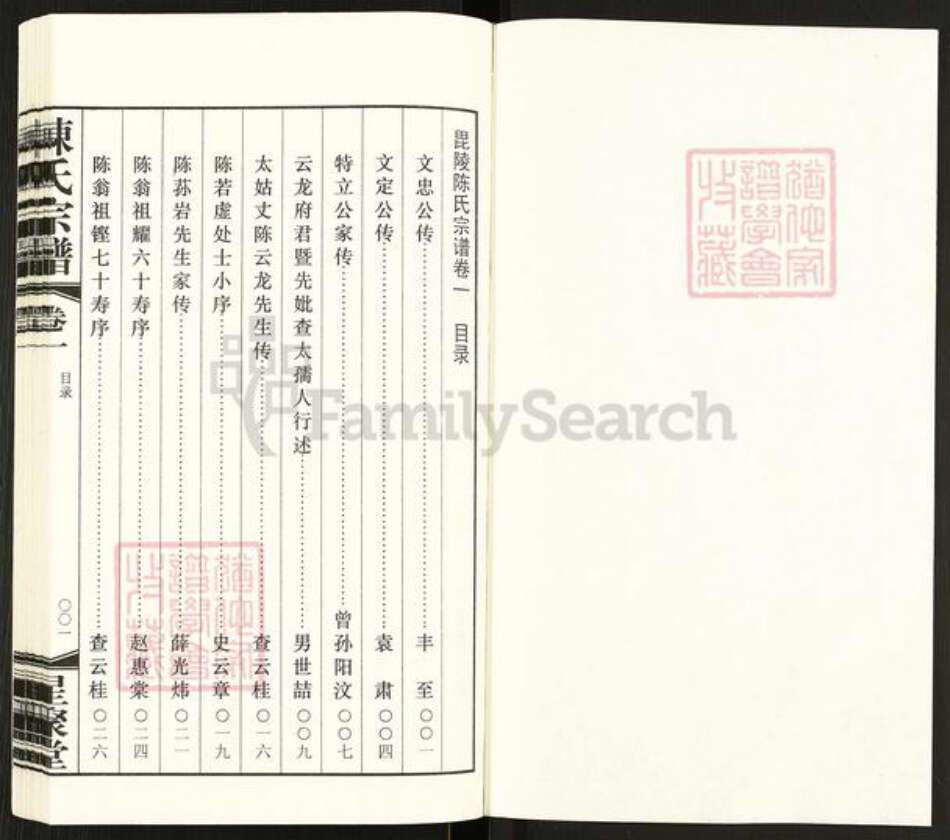 毘陵陈氏宗谱卷一 目录
文忠公传 丰至 〇〇一
文定公传 袁肃 〇〇四
特立公家传 曾孙阳汶 〇〇七
云龙府君暨先妣查太孺人行述 男世喆 〇〇九
太姑丈陈云龙先生传 查云桂 〇一六
陈若虚处士小序 史云章 〇一九
陈荪岩先生家传 薛光炜 〇二一
陈翁祖耀六十寿序 赵惠棠 〇二四
陈翁祖铿七十寿序 查云桂 〇二六
陳氏宗譜 卷一 目录 〇〇一 星聚堂
FamilySearch